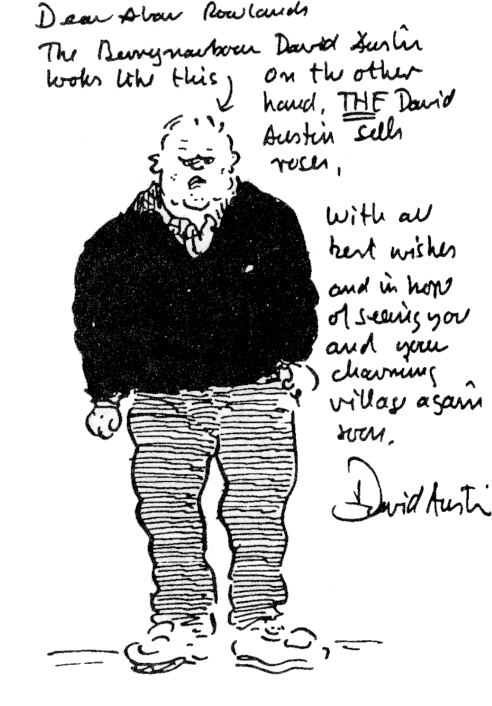 Dear Alan Rowlands
The Berrynarbour David Austin
looks like this
on the other
hand, THE David
Austin sells
roses,
With all
best wishes
and in hope
of seeing you
and your
charming
village again
soon.
David Austin